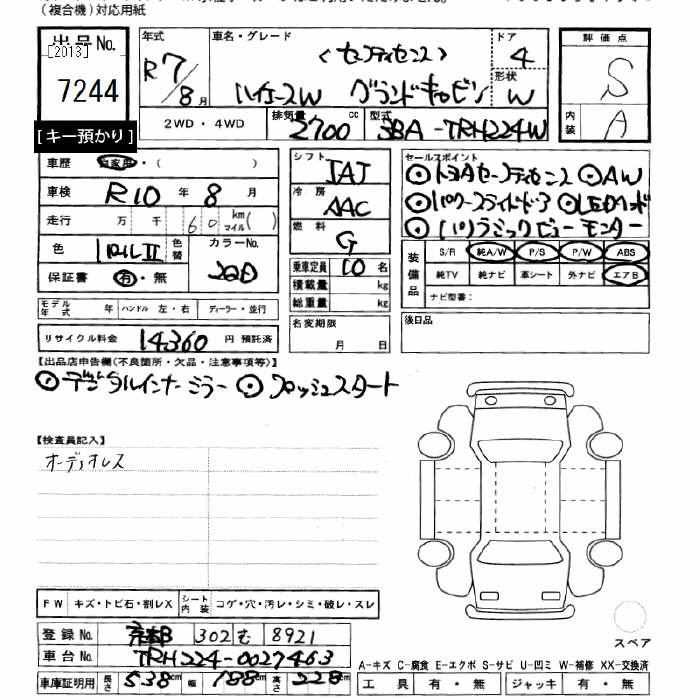 (複合機)対応用紙
出品No. [2013] 7244
[キー預かり]
年式 R7/8月 車名・グレード 〈セーフティセンス〉 ハイエースW グランドキャビン ドア 4 形状 W
2WD・4WD 排気量 2700 cc 型式 3BA-TRH224W
評価点 S
内装 A
車歴 自家用・( )
車検 R10年 8月
走行 万 千 60 km マイル( )
色 色替 カラーNo.
保証書 有・無
モデル年式 年 ハンドル 左・右 ディーラー・並行
リサイクル料金 14,360 円 預託済
シフト IAT
冷房 AAC
燃料 G
乗車定員 10名
積載量 kg
総重量 kg
名変期限 月 日
セールスポイント
◎トヨタセーフティセンス ◎AW
◎パワースライドドア ◎LEDヘッド
◎パノラミックビューモニター
装備品 S/R 純A/W P/S P/W ABS
純TV 純ナビ 革シート 外ナビ エアB
ナビ型番:
後日品
【出品店申告欄(不良箇所・欠品・注意事項等)】
◎デジタルインナーミラー ◎プッシュスタート
【検査員記入】
オーディオレス
FW キズ・トビ石・割レX シート内装 コゲ・穴・汚レ・シミ・破レ・スレ
登録No. 302 む 8921
車台No. TRH224-0027463
車庫証明用 長さ 538cm 幅 188cm 高さ 228cm
スペア
A-キズ C-腐食 E-エクボ S-サビ U-凹ミ W-補修 XX-交換済
工具 有・無 ジャッキ 有・無